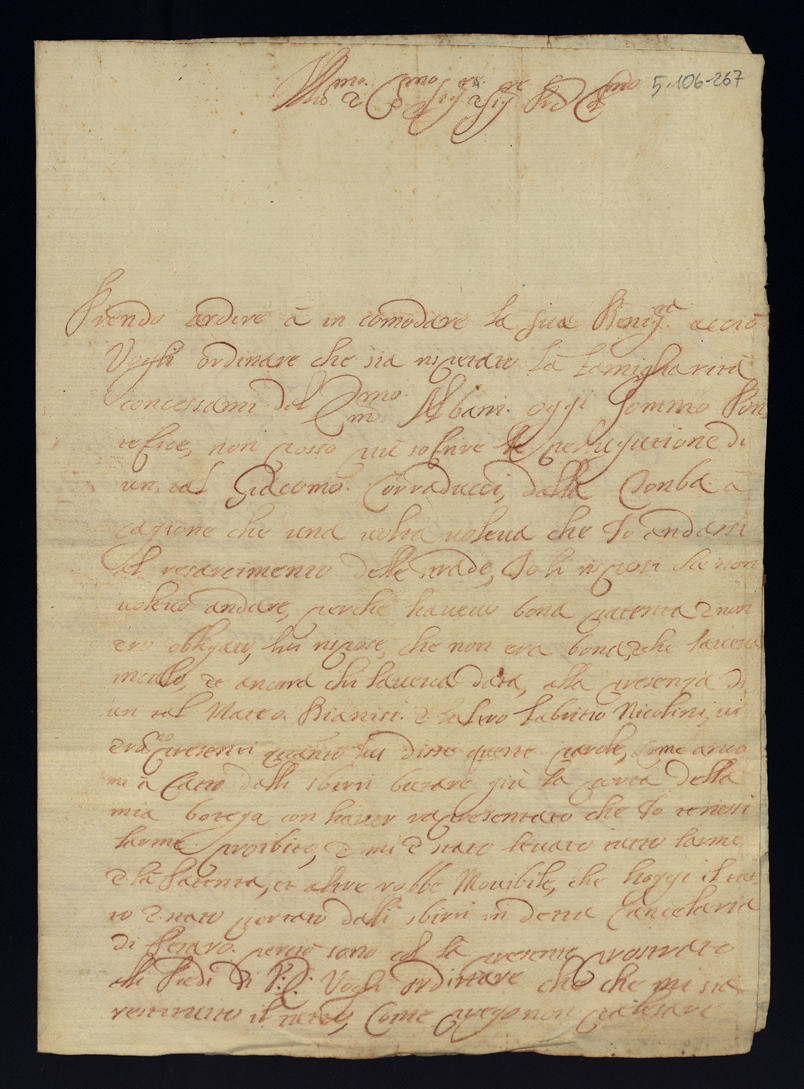 Ill.mo 5-106-267
Prendo ardire à in comodare la sua Benig.tà acciò
Vogli ordinare che sia rispetato la famigliarità
concessami dal Em.mo Albani oggi Sommo Pon
tefice, non posso più sofrire le persigutione di
un tal Giacomo Corraducci, dalla Tonba à
cagione che una volta voleva che Io andassi
al resarcimento delle strade, Io li risposi che non
volevo andare, perche havevo bona patenta e non
ero obligato, lui rispose, che non era bona, e che l'aveva
in culo, et ancora chi l'aveva data, alla presenzia di
un tal Mateo Bianisi. e Fabritio Nicolini,
presenti quanto lui disse queste parole,
mi à fatto dalli sbirri butare giù la porta della
mia botega con haver rapresentato che Io tenessi
larme proibite, e mi è stato levato tutto larme
e la Patenta, et altre robbe Movibile, che hoggi il tut
to è stato portato dalli sbirri in detta Cancelaria
di Pesaro. perciò sono col la presente prostrato
alli Piedi di Vogli ordinare che che mi sia
restituito il tutto, Come prego non tralasare